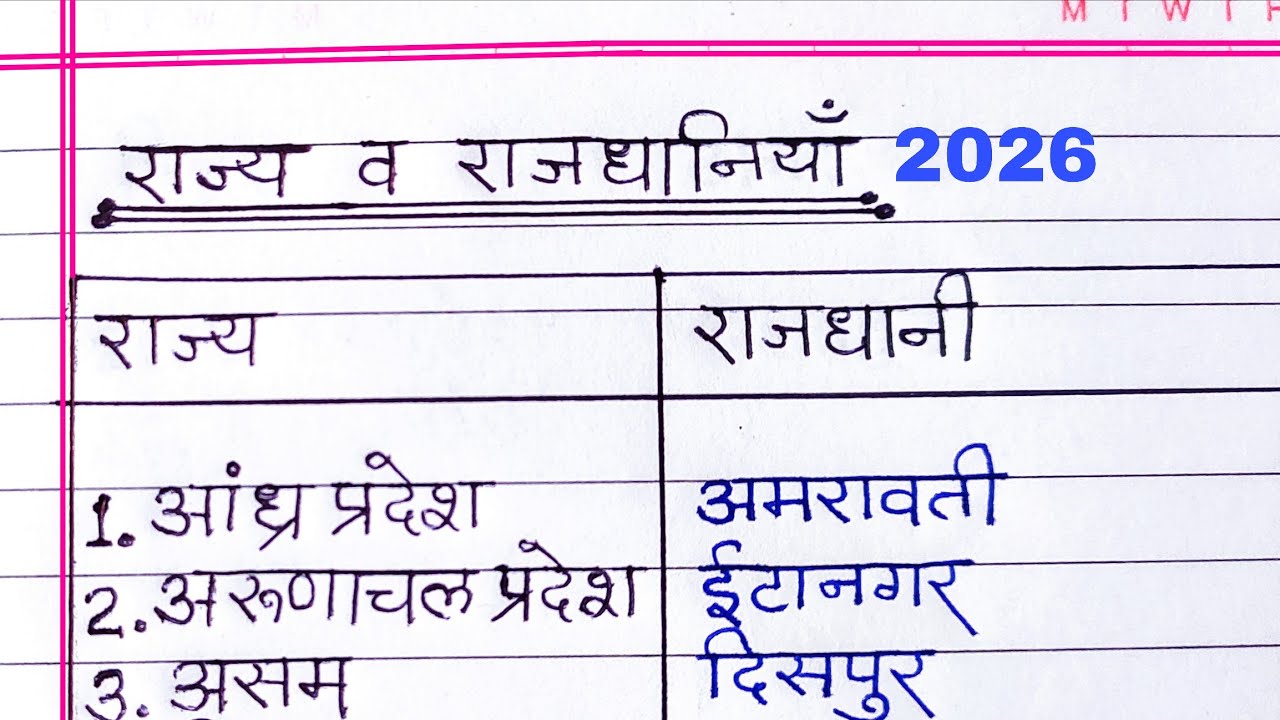 M T W T F
राज्य व राजधानियाँ 2026
राज्य राजधानी
1. आंध्र प्रदेश अमरावती
2. अरुणाचल प्रदेश ईटानगर
3. असम दिसपुर